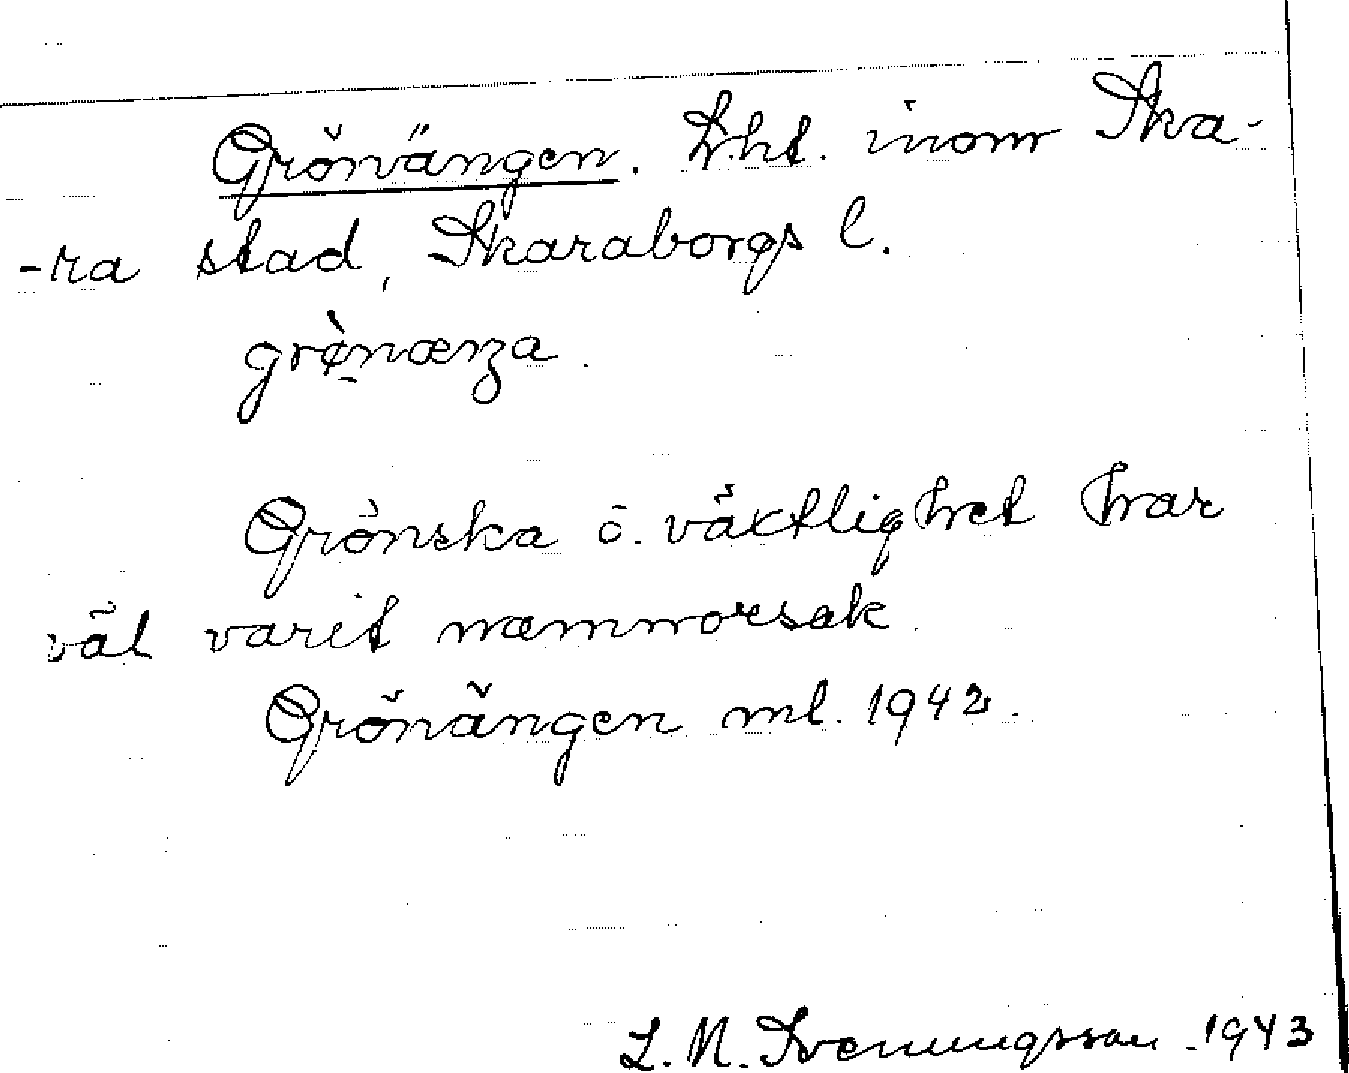 Grönängen. Lht. inom Ska-
-ra stad, Skaraborgs l.
grø̀næŋa.
Grönska o. växtlighet har
väl varit namnorsak.
Grönängen ml. 1942.
L. N. Svenungsson. 1943